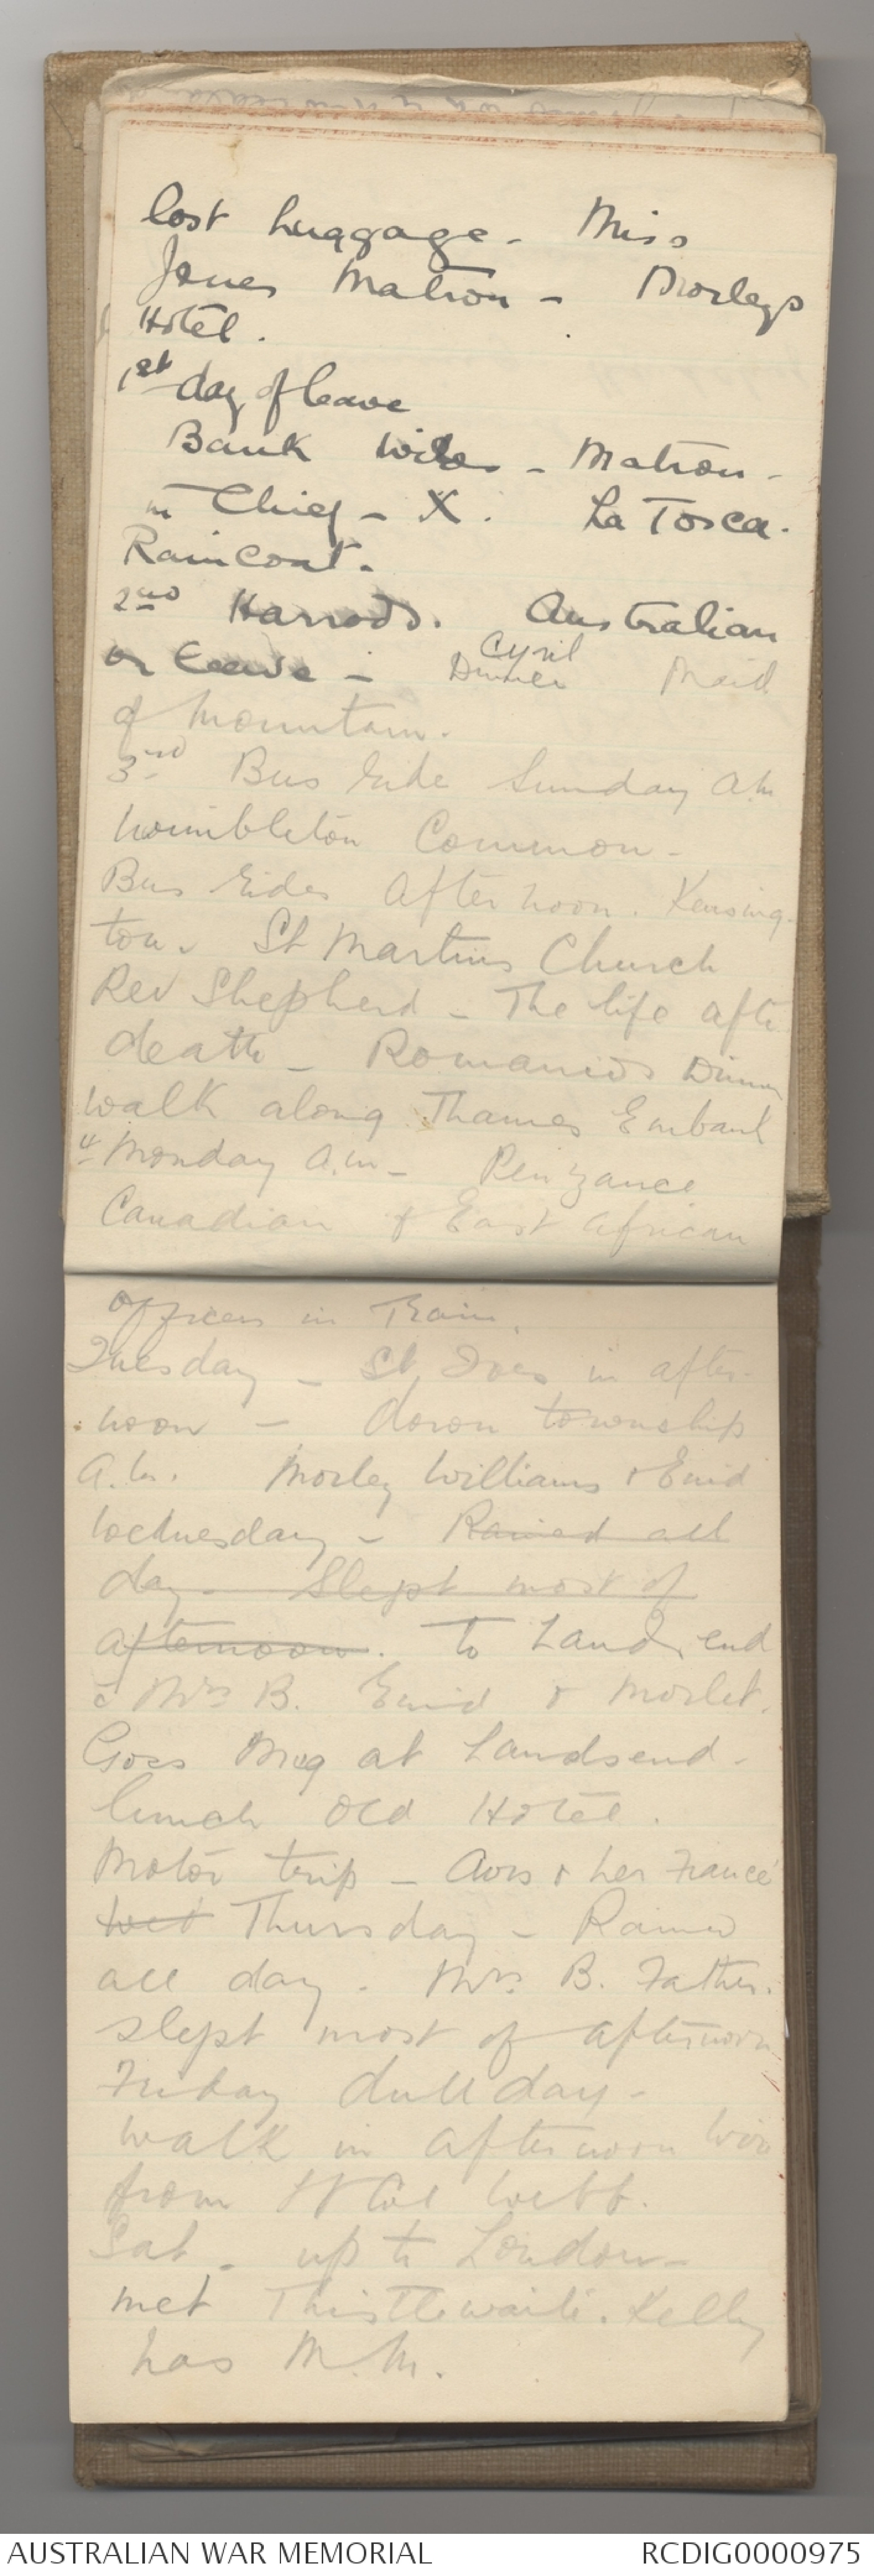 lost luggage - Miss
Jones Matron - Morleys
Hotel.
1st day of leave
Bank - Matron -
in Chief - X. La Tosca.
Raincoat.
2nd Harrods. Australian
on leave - Cyril
Dinner Maid
of Mountain.
3rd Bus ride Sunday a.m
Wimbleton Common -
Bus rides afternoon. Kensing-
ton. St Martins Church
Rev Shepherd - The life afte
death - Romanios Dinner
walk along Thames Embank
4 Monday a.m - Penzance
Canadian & East African
officers in Train.
Tuesday - St Ives in after-
noon - down township
a.m. Morley Williams & Enid
Wednesday - Rained all
day - Slept most of
afternoon. To Lands end
c Mrs B. Enid & Morley.
Goes Meg at Landsend -
lunch old Hotel.
Motor trip - Avis & her Fiancé
Wed Thursday - Rained
all day. Mrs B. Father.
slept most of afternoon
Friday dull day -
walk in afternoon Wire
from Lt Col Webb.
Sat - up to London -
met Thistlewaite. Kelly
has M.M.
AUSTRALIAN WAR MEMORIAL
RCDIG0000975